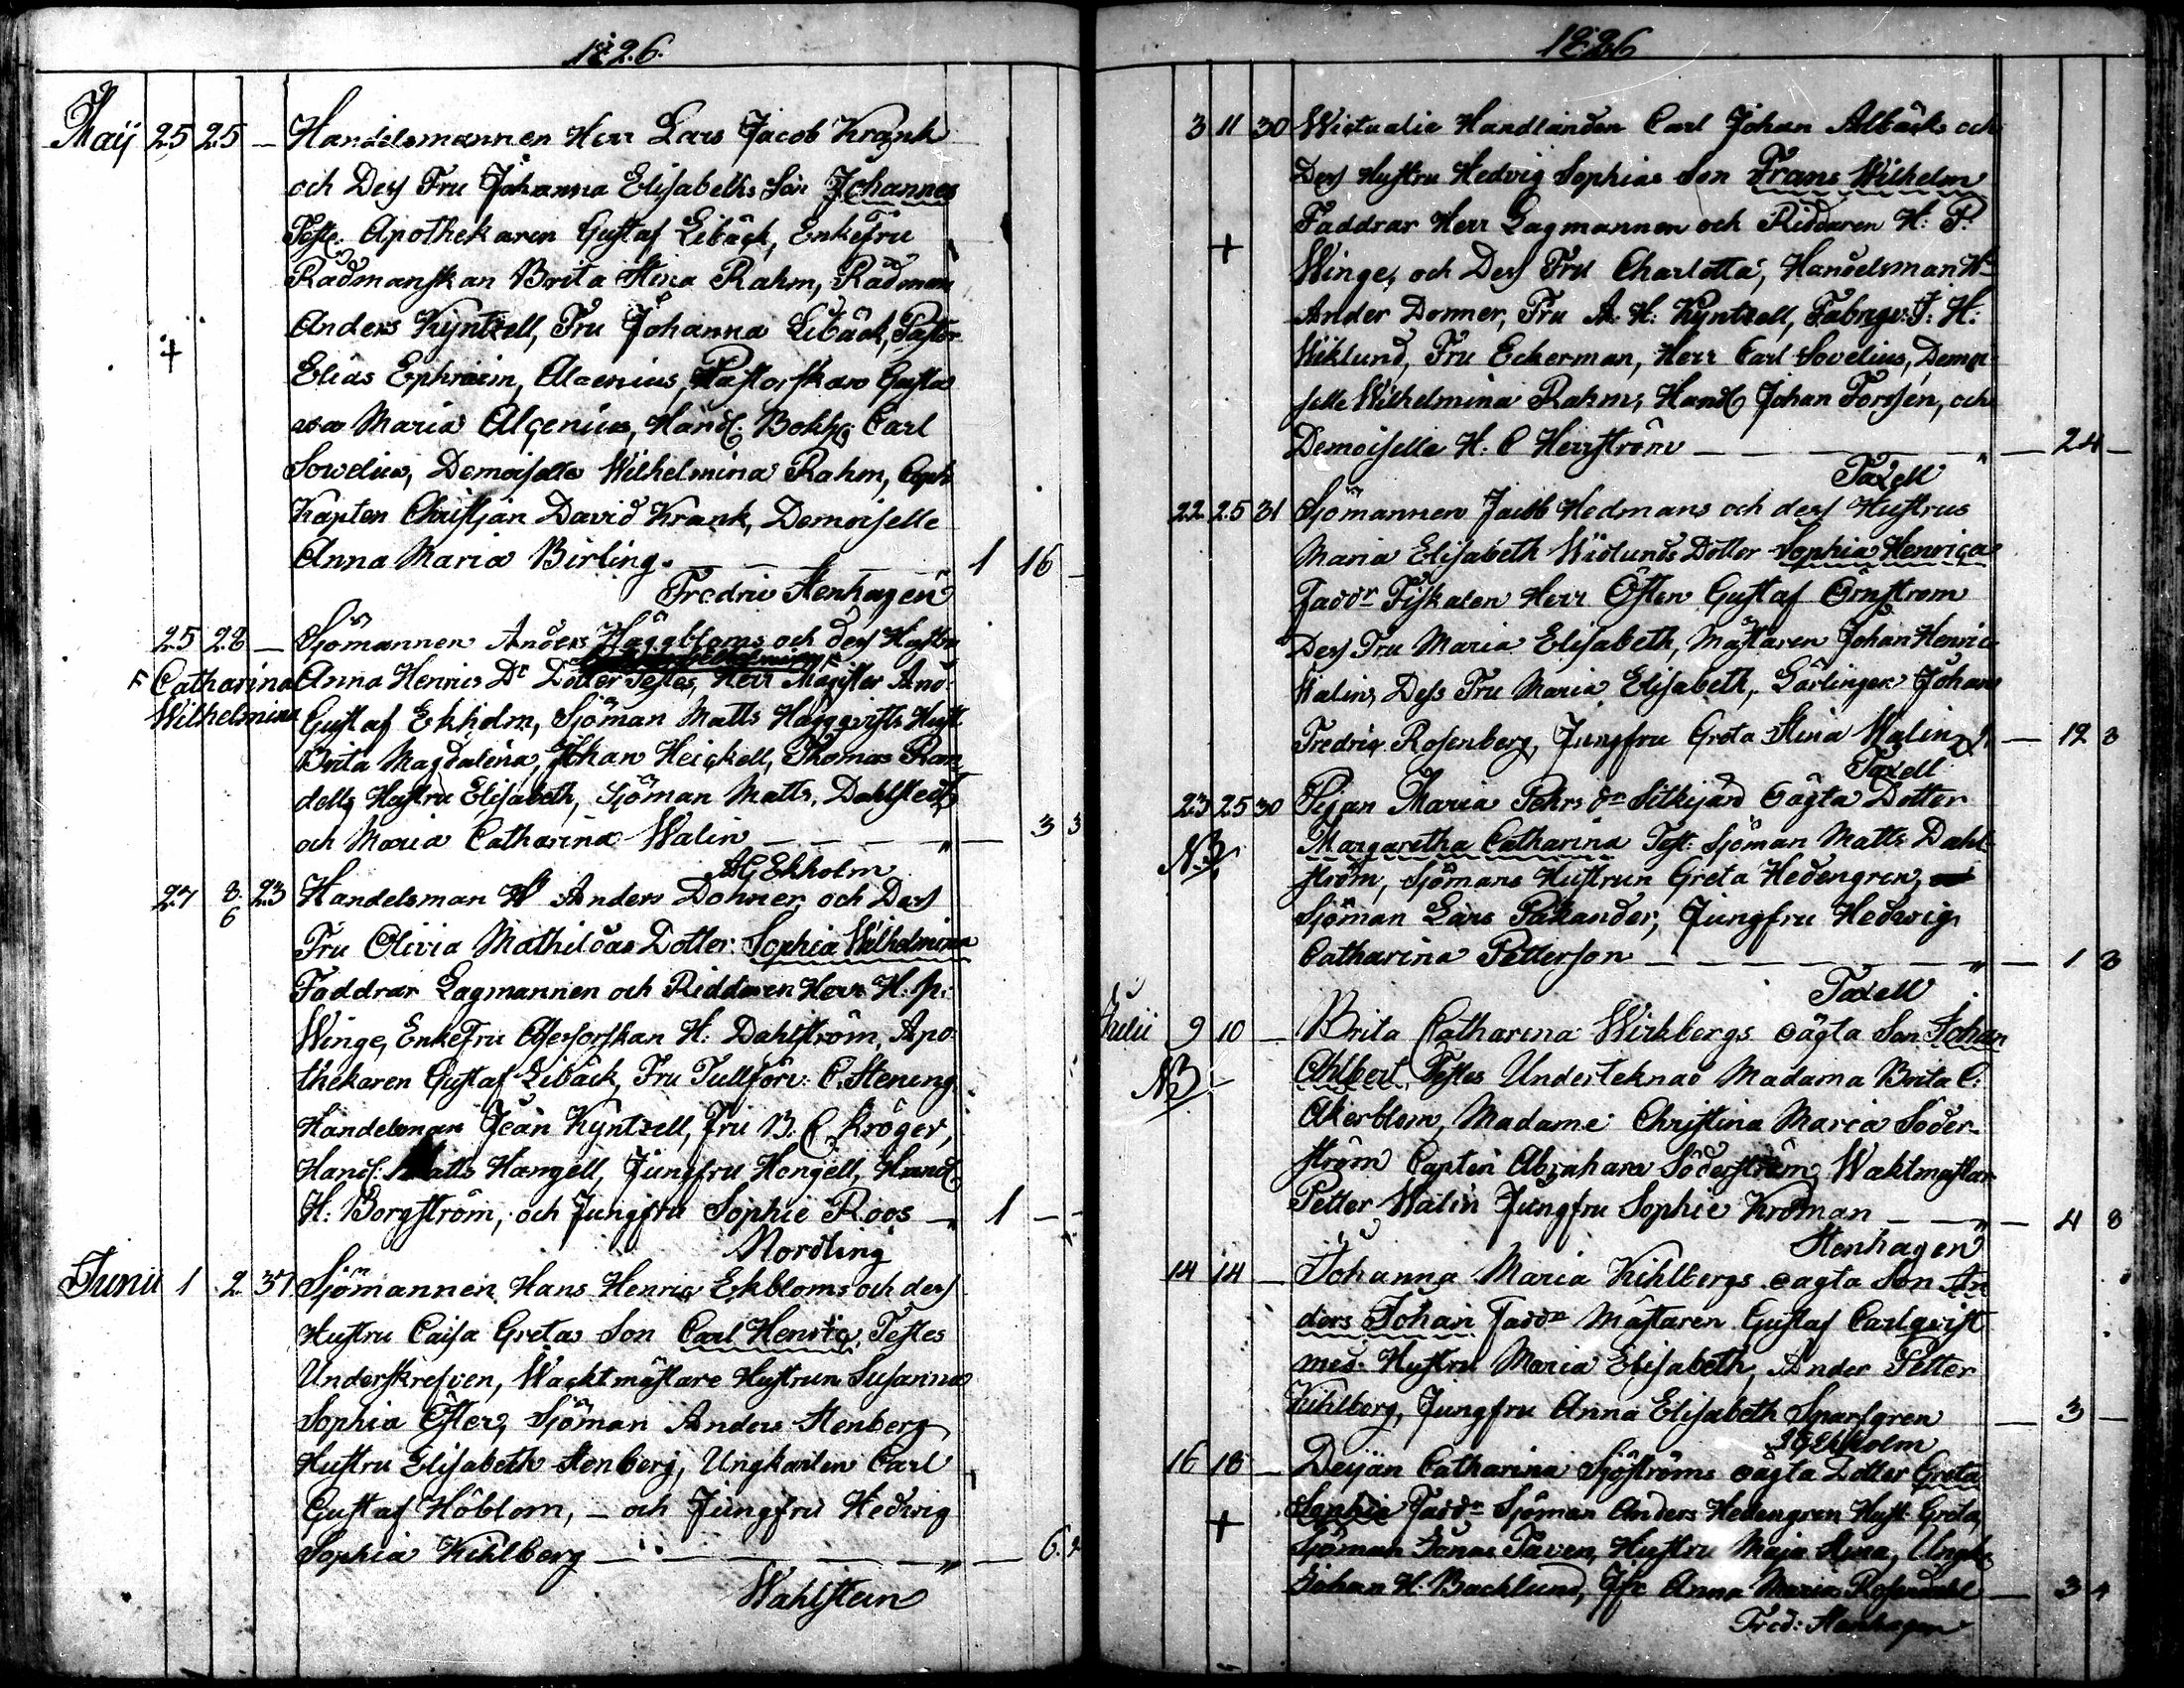 1826.
Maij 25 25 — Handelsmannen Herr Lars Jacob Krank
och Dess Fru Johanna Elisabeths Son Johannes
Teste. Apothekaren Gustaf Libäck, Enkefru
Rådmanskan Brita Stina Rahm, Rådman
Anders Kyntzell, Fru Johanna Libäck, Pastor
+
Elias Ephraim, Alcenius, Pastorskan Gusta
va Maria Alcenius, Handl: Bokh: Carl
Sovelius, Demoiselle Wilhelmina Rahm,
Kapten Christjan David Krank, Demoiselle
Anna Maria Birling. — 1 16 —
Fredric Stenhagen
25 28 — Sjömannen Anders Häggbloms och dess Hustru
F Catharina Anna Henrics Dr Dotter Testes, Herr Magister And:
Wilhelmina Gustaf Ekholm, Sjöman Matts Häggqvists Hust.
Brita Magdalena, Johan Heickell, Thomas Ran
dells Hustru Elisabeth, Sjöman Matts Dahlstedt,
och Maria Catharina Walin — 3 3
AG Ekholm
27 8/6 23 Handelsman Hr Anders Donner och Dess
Fru Olivia Mathildas Dotter Sophia Wilhelmina
Faddrar Lagmannen och Riddaren Herr H. P:
Winge, Enkefru Assessorskan H: Dahlström, Apo
thekaren Gustaf Libäck, Fru Tullförv: C. Stening
Handelsman Jean Kyntzell, Fru B. C. Kröger,
Handl: Matts Hongell, Jungfru Hongell, Handl
H: Borgström, och Jungfru Sophie Roos — 1 — —
Nordling
Junii 1 2 37 Sjömannen Hans Henric Ekbloms och dess
Hustru Caisa Greta Son Carl Henric, Testes
Underskrefven, Wacktmästare Hustrun Susanna
Sophia Öster, Sjöman Anders Stenberg
Hustru Elisabeth Stenberg, Ungkarlen Carl
Gustaf Höblom, — och Jungfru Hedvig
Sophia Kihlberg — 6.
Wahlstein
1826
3 11 30 Victualie Handlanden Carl Johan Ahlbäcks och
Dess Hustru Hedvig Sophias Son Frans Wilhelm
Faddrar Herr Lagmannen och Riddaren H: P.
+
Winge, och Dess Fru Charlotta, Handelsman Hr
Ander Donner, Fru A. H: Kyntzell, Fabriqv: J: H:
Wiklund, Fru Eckerman, Herr Carl Sovelius, Demoi
selle Wilhelmina Rahm, Handl Johan Forssén, och
Demoiselle H: C Herrström — 24 —
Taxell
22 25 31 Sjömannen Jacob Hedmans och dess Hustrus
Maria Elisabeth Widlunds Dotter Sophia Henrica
Faddr Fiskalen Herr Östen Gustaf Örnström
Dess Fru Maria Elisabeth, Mästaren Johan Henric
Walin, Dess Fru Maria Elisabeth, Lärlingen Johan
Fredric Rosenberg, Jungfru Greta Stina Walin — 12 3
Taxell
23 25 30 Pigan Maria Pehrs dr oägta Dotter
NB Margaretha Catharina Test: Sjöman Matts Dahl
ström, Sjömans Hustrun Greta Hedengren,
Sjöman Lars Påkander, Jungfru Hedvig
Catharina Petterson — 1 3
Taxell
Julii 9 10 — Brita Catharina Wickbergs oägta Son Johan
NB Ahlbert, Testes Undertecknad Madama Brita C:
Åkerblom, Madame Christina Maria Söder-
ström Capten Abraham Söderström, Waktmästar
Petter Walin Jungfru Sophie Kroman — 4 8
Stenhagen
14 14 — Johanna Maria Kihlbergs oägta Son An
ders Johan Faddr Mästaren Gustaf Carlqvist
med Hustru Maria Elisabeth, Ander Petter
Kihlberg, Jungfru Anna Elisabeth Sparfgren — 3 —
AG Ekholm
16 18 — Dejan Catharina Sjöströms oägta Dotter Greta
+ Sophie Faddr Sjöman Anders Hedengren Hust. Greta,
Sjöman Jonas Påven, Hustru Maja Stina, Ungk:
Johan H: Backlund, Jfr Anna Maria Rosendahl — 3 4
Fred: Stenhagen